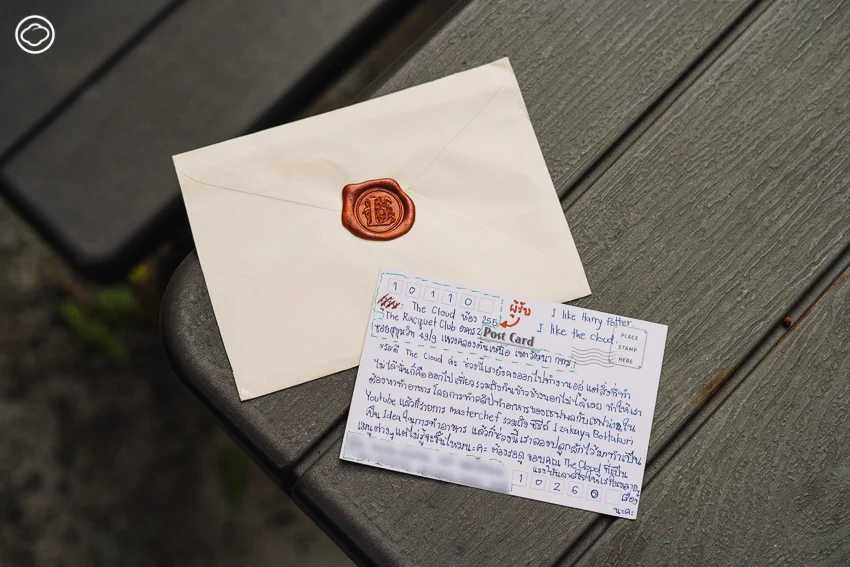 10110
ผู้รับ
The Cloud ห้อง 255
The Racquet Club อาคาร 2
ซอยสุขุมวิท 49/9 แขวงคลองตันเหนือ เขตวัฒนา กทม
I like Harry Potter.
I like the cloud
Post Card
PLACE
STAMP
HERE
สวัสดี The Cloud ค่ะ ช่วงนี้เรายังคงออกไปทำงานอยู่ แต่สิ่งที่ทำ
ไม่ได้นั่นก็คือออกไปเที่ยวรวมถึงกินข้าวข้างนอกไม่ได้เลย ทำให้เรา
ต้องหาทำอาหาร โดยการทำคลิปทำอาหารของเชฟ
Youtube แล้วก็รายการ masterchef รวมถึง ซีรีย์ Izakaya Bottakuri
เป็น Idea ในการทำอาหาร แล้วก็ช่วงนี้เราลองปลูกผักไว้มาทำเป็น
เมนูต่างๆ แต่ไม่รู้จะขึ้นไหมนะคะ ต้องรอดู ขอบคุณ The Cloud ที่เป็น
เรื่อง
นะคะ
10260